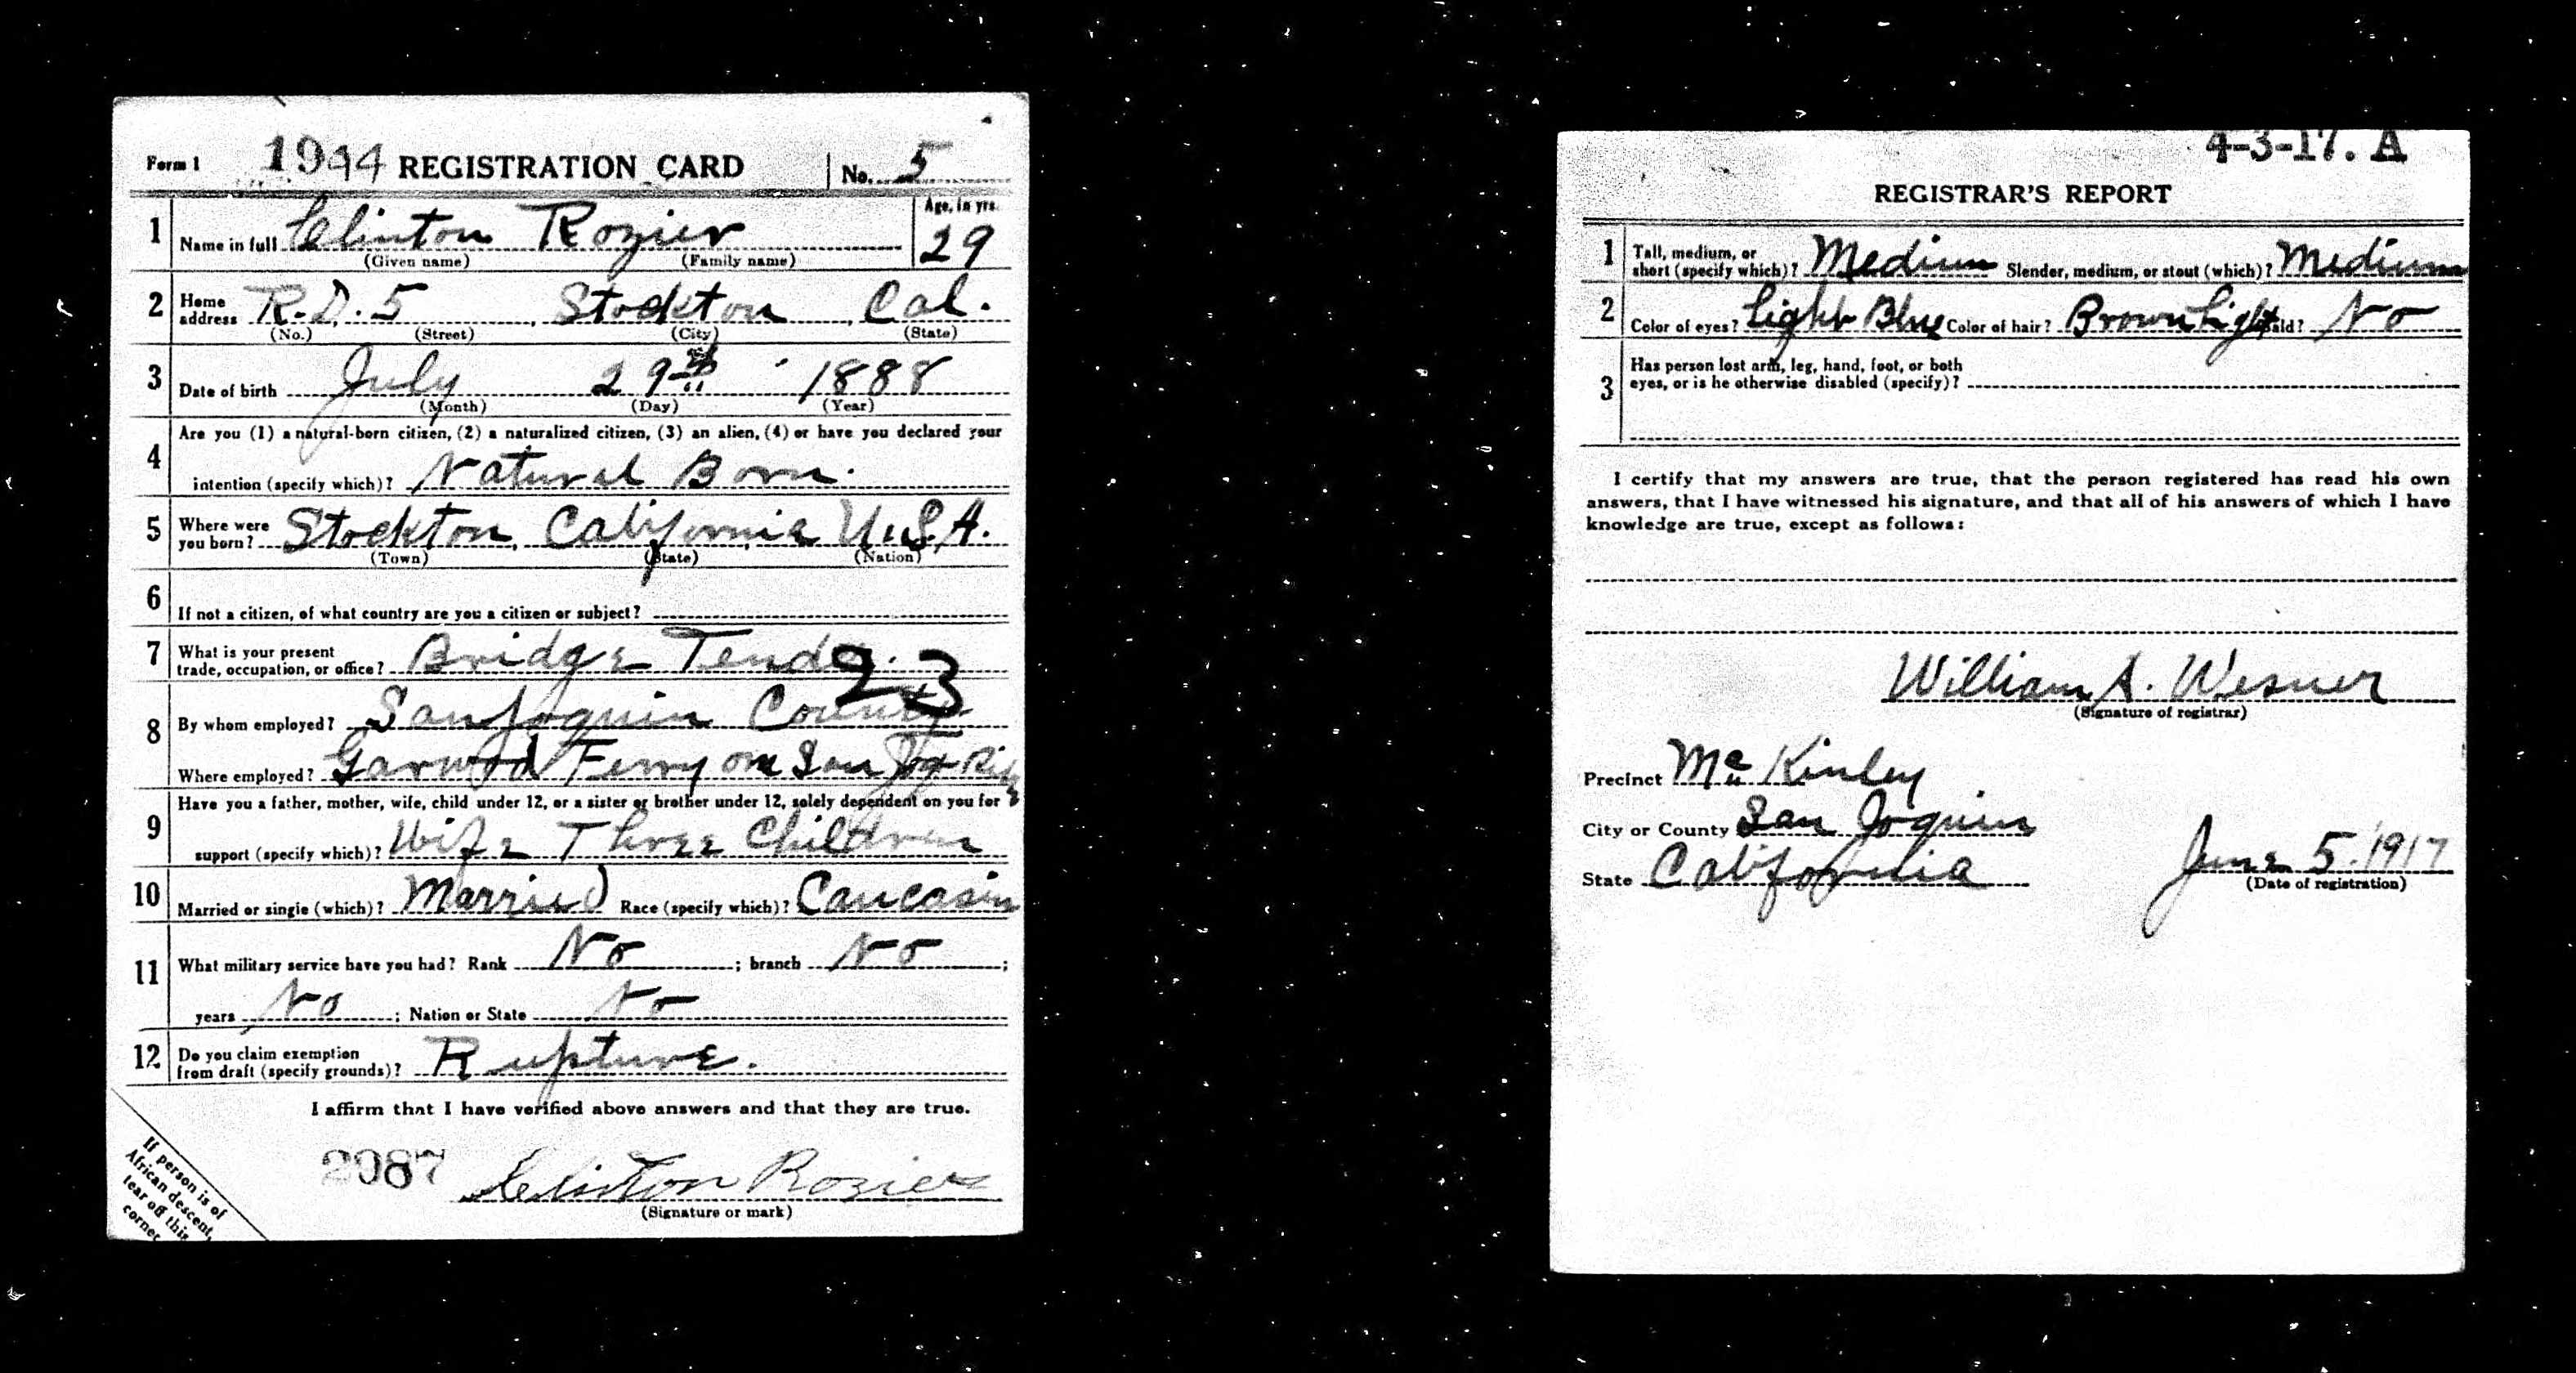 Form 1 1944 REGISTRATION CARD No. 5
1 Name in full Clinton Rozier Age, in yrs. 29
(Given name) (Family name)
2 Home address R.D. 5 Stockton, Cal.
(No.) (Street) (City) (State)
3 Date of birth July 29th 1888
(Month) (Day) (Year)
4 Are you (1) a natural-born citizen, (2) a naturalized citizen, (3) an alien, (4) or have you declared your
intention (specify which)? Natural Born.
5 Where were you born? Stockton, California U.S.A.
(Town) (State) (Nation)
6 If not a citizen, of what country are you a citizen or subject?
7 What is your present
trade, occupation, or office? Bridge Tender.
23
8 By whom employed? San Joquin County
Where employed? Garwood Ferry on San Joq River
9 Have you a father, mother, wife, child under 12, or a sister or brother under 12, solely dependent on you for
support (specify which)? Wife Three Children
10 Married or single (which)? Married Race (specify which)? Caucasin
11 What military service have you had? Rank No ; branch No ;
years No ; Nation or State No
12 Do you claim exemption
from draft (specify grounds)? Rupture.
I affirm that I have verified above answers and that they are true.
2087 Clinton Rozier
(Signature or mark)
If person is of
African descent,
tear off this
corner
4-3-17. A
REGISTRAR'S REPORT
1 Tall, medium, or
short (specify which)? Medium Slender, medium, or stout (which)? Medium
2 Color of eyes? Light Blue Color of hair? Brown Light Bald? No
3 Has person lost arm, leg, hand, foot, or both
eyes, or is he otherwise disabled (specify)?
I certify that my answers are true, that the person registered has read his own
answers, that I have witnessed his signature, and that all of his answers of which I have
knowledge are true, except as follows:
William A. Wesner
(Signature of registrar)
Precinct McKinley
City or County San Joquin
State California June 5. 1917
(Date of registration)